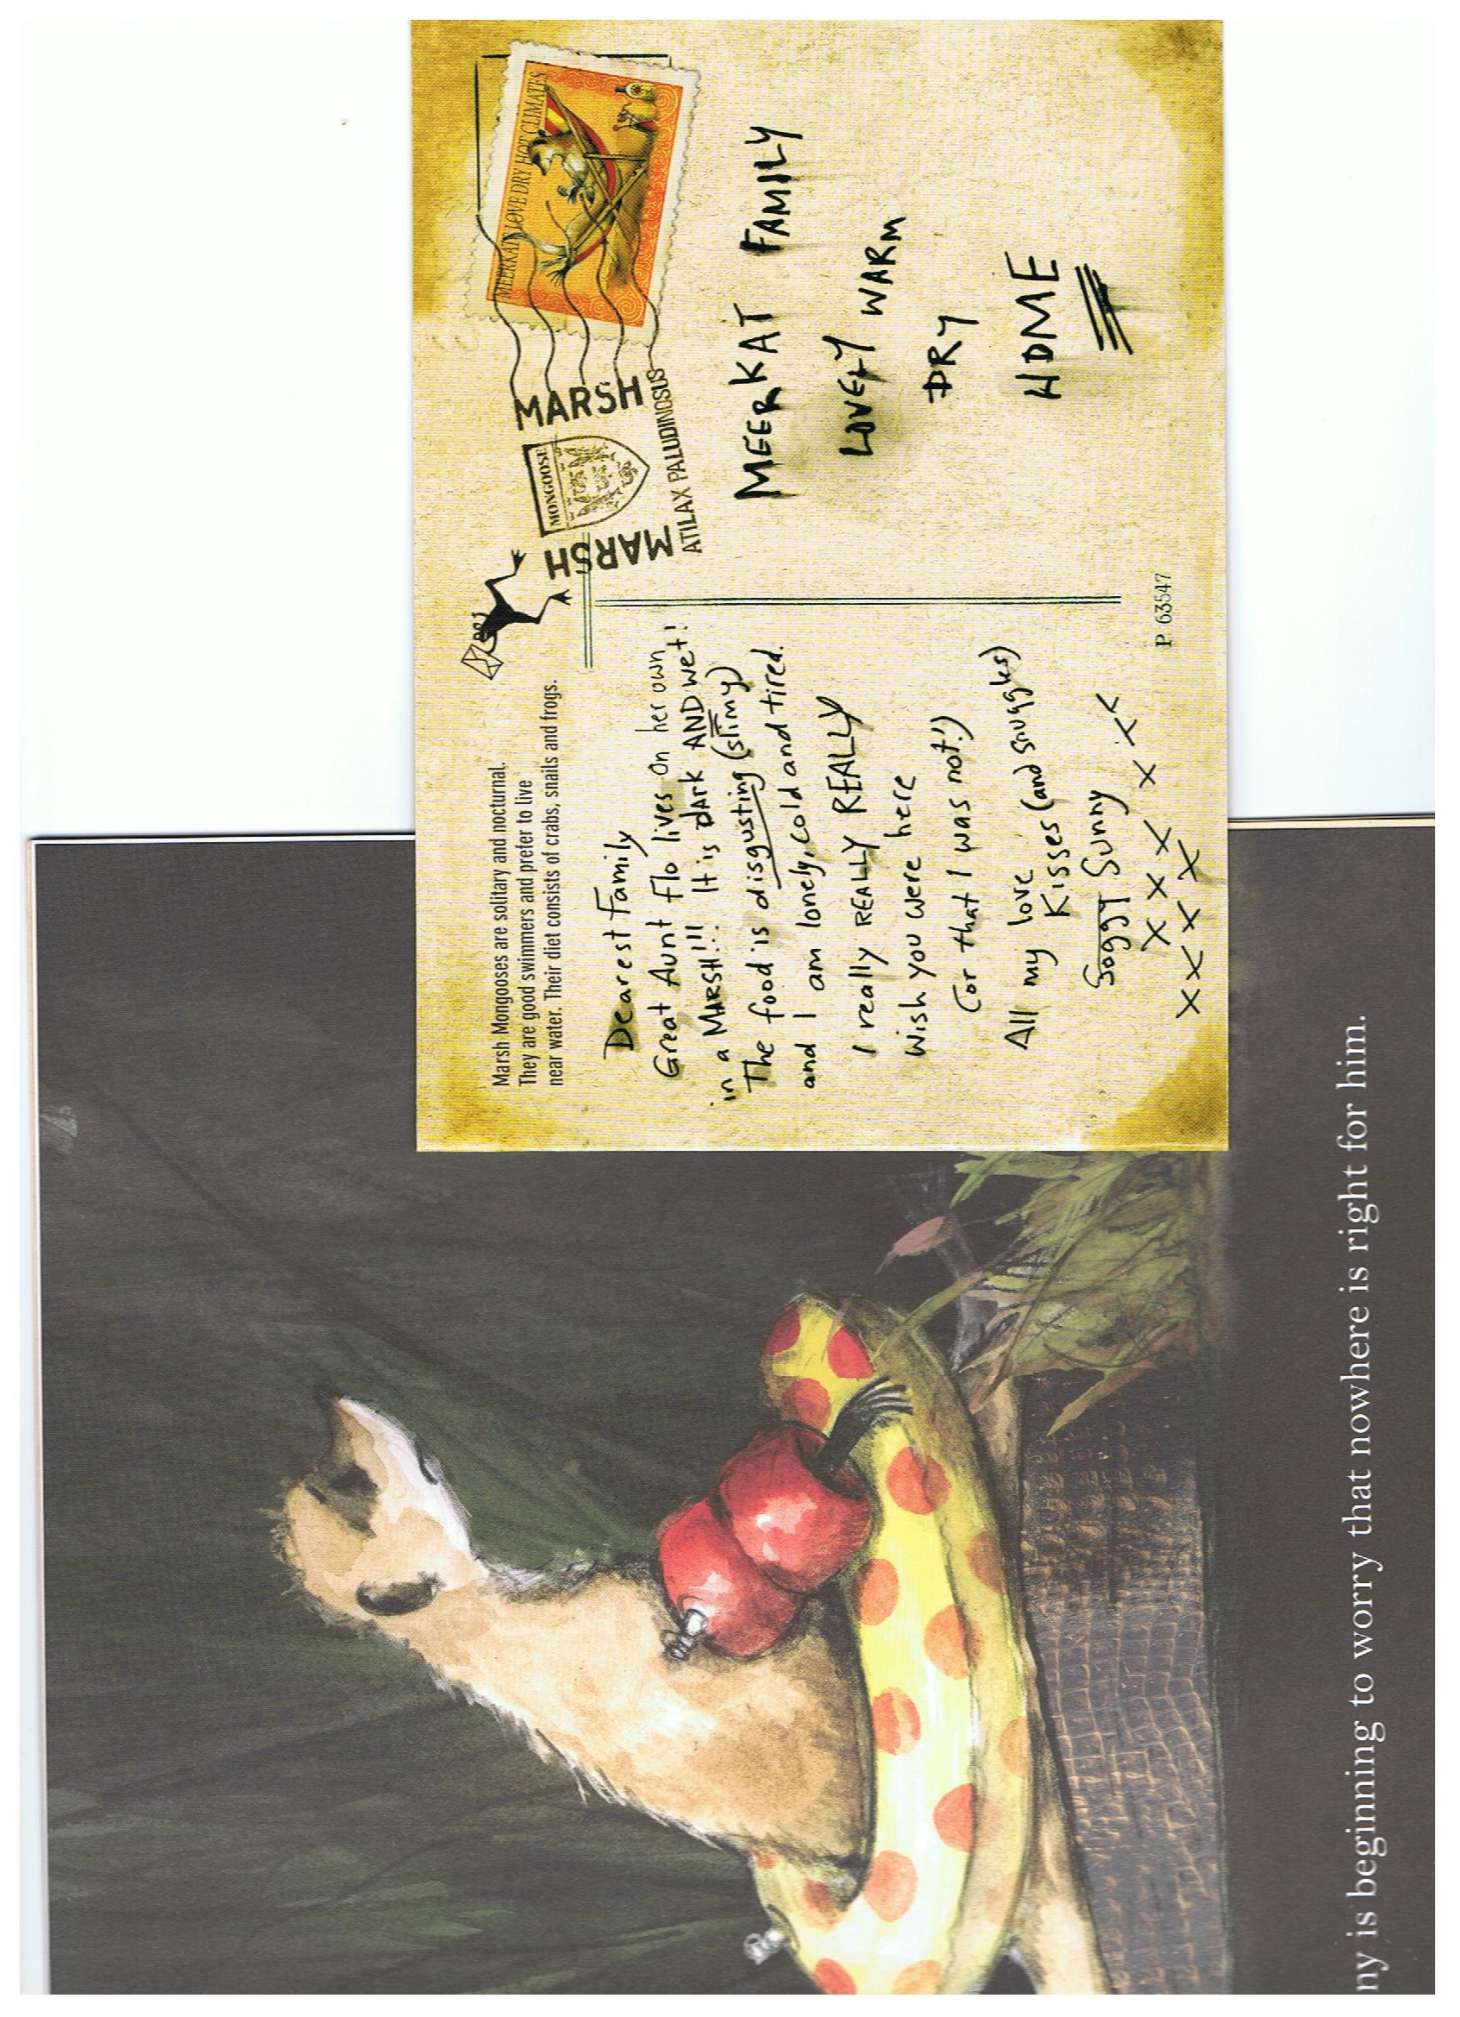 Marsh Mongooses are solitary and nocturnal.
They are good swimmers and prefer to live
near water. Their diet consists of crabs, snails and frogs.
Dearest Family
Great Aunt Flo lives on her own
in a MARSH!!! It is dark AND wet!
The food is disgusting (slimy)
and I am lonely, cold and tired.
I really REALLY REALLY
wish you were here
(or that I was not!)
All my love
Kisses (and snuggles)
Soggy Sunny
x x x x x x
x x x x
MEERKATS LOVE DRY HOT CLIMATES
MARSH
MONGOOSE
MARSH
ATILAX PALUDINOSUS
MEERKAT FAMILY
LOVELY WARM
DRY
HOME
P 63547
ny is beginning to worry that nowhere is right for him.